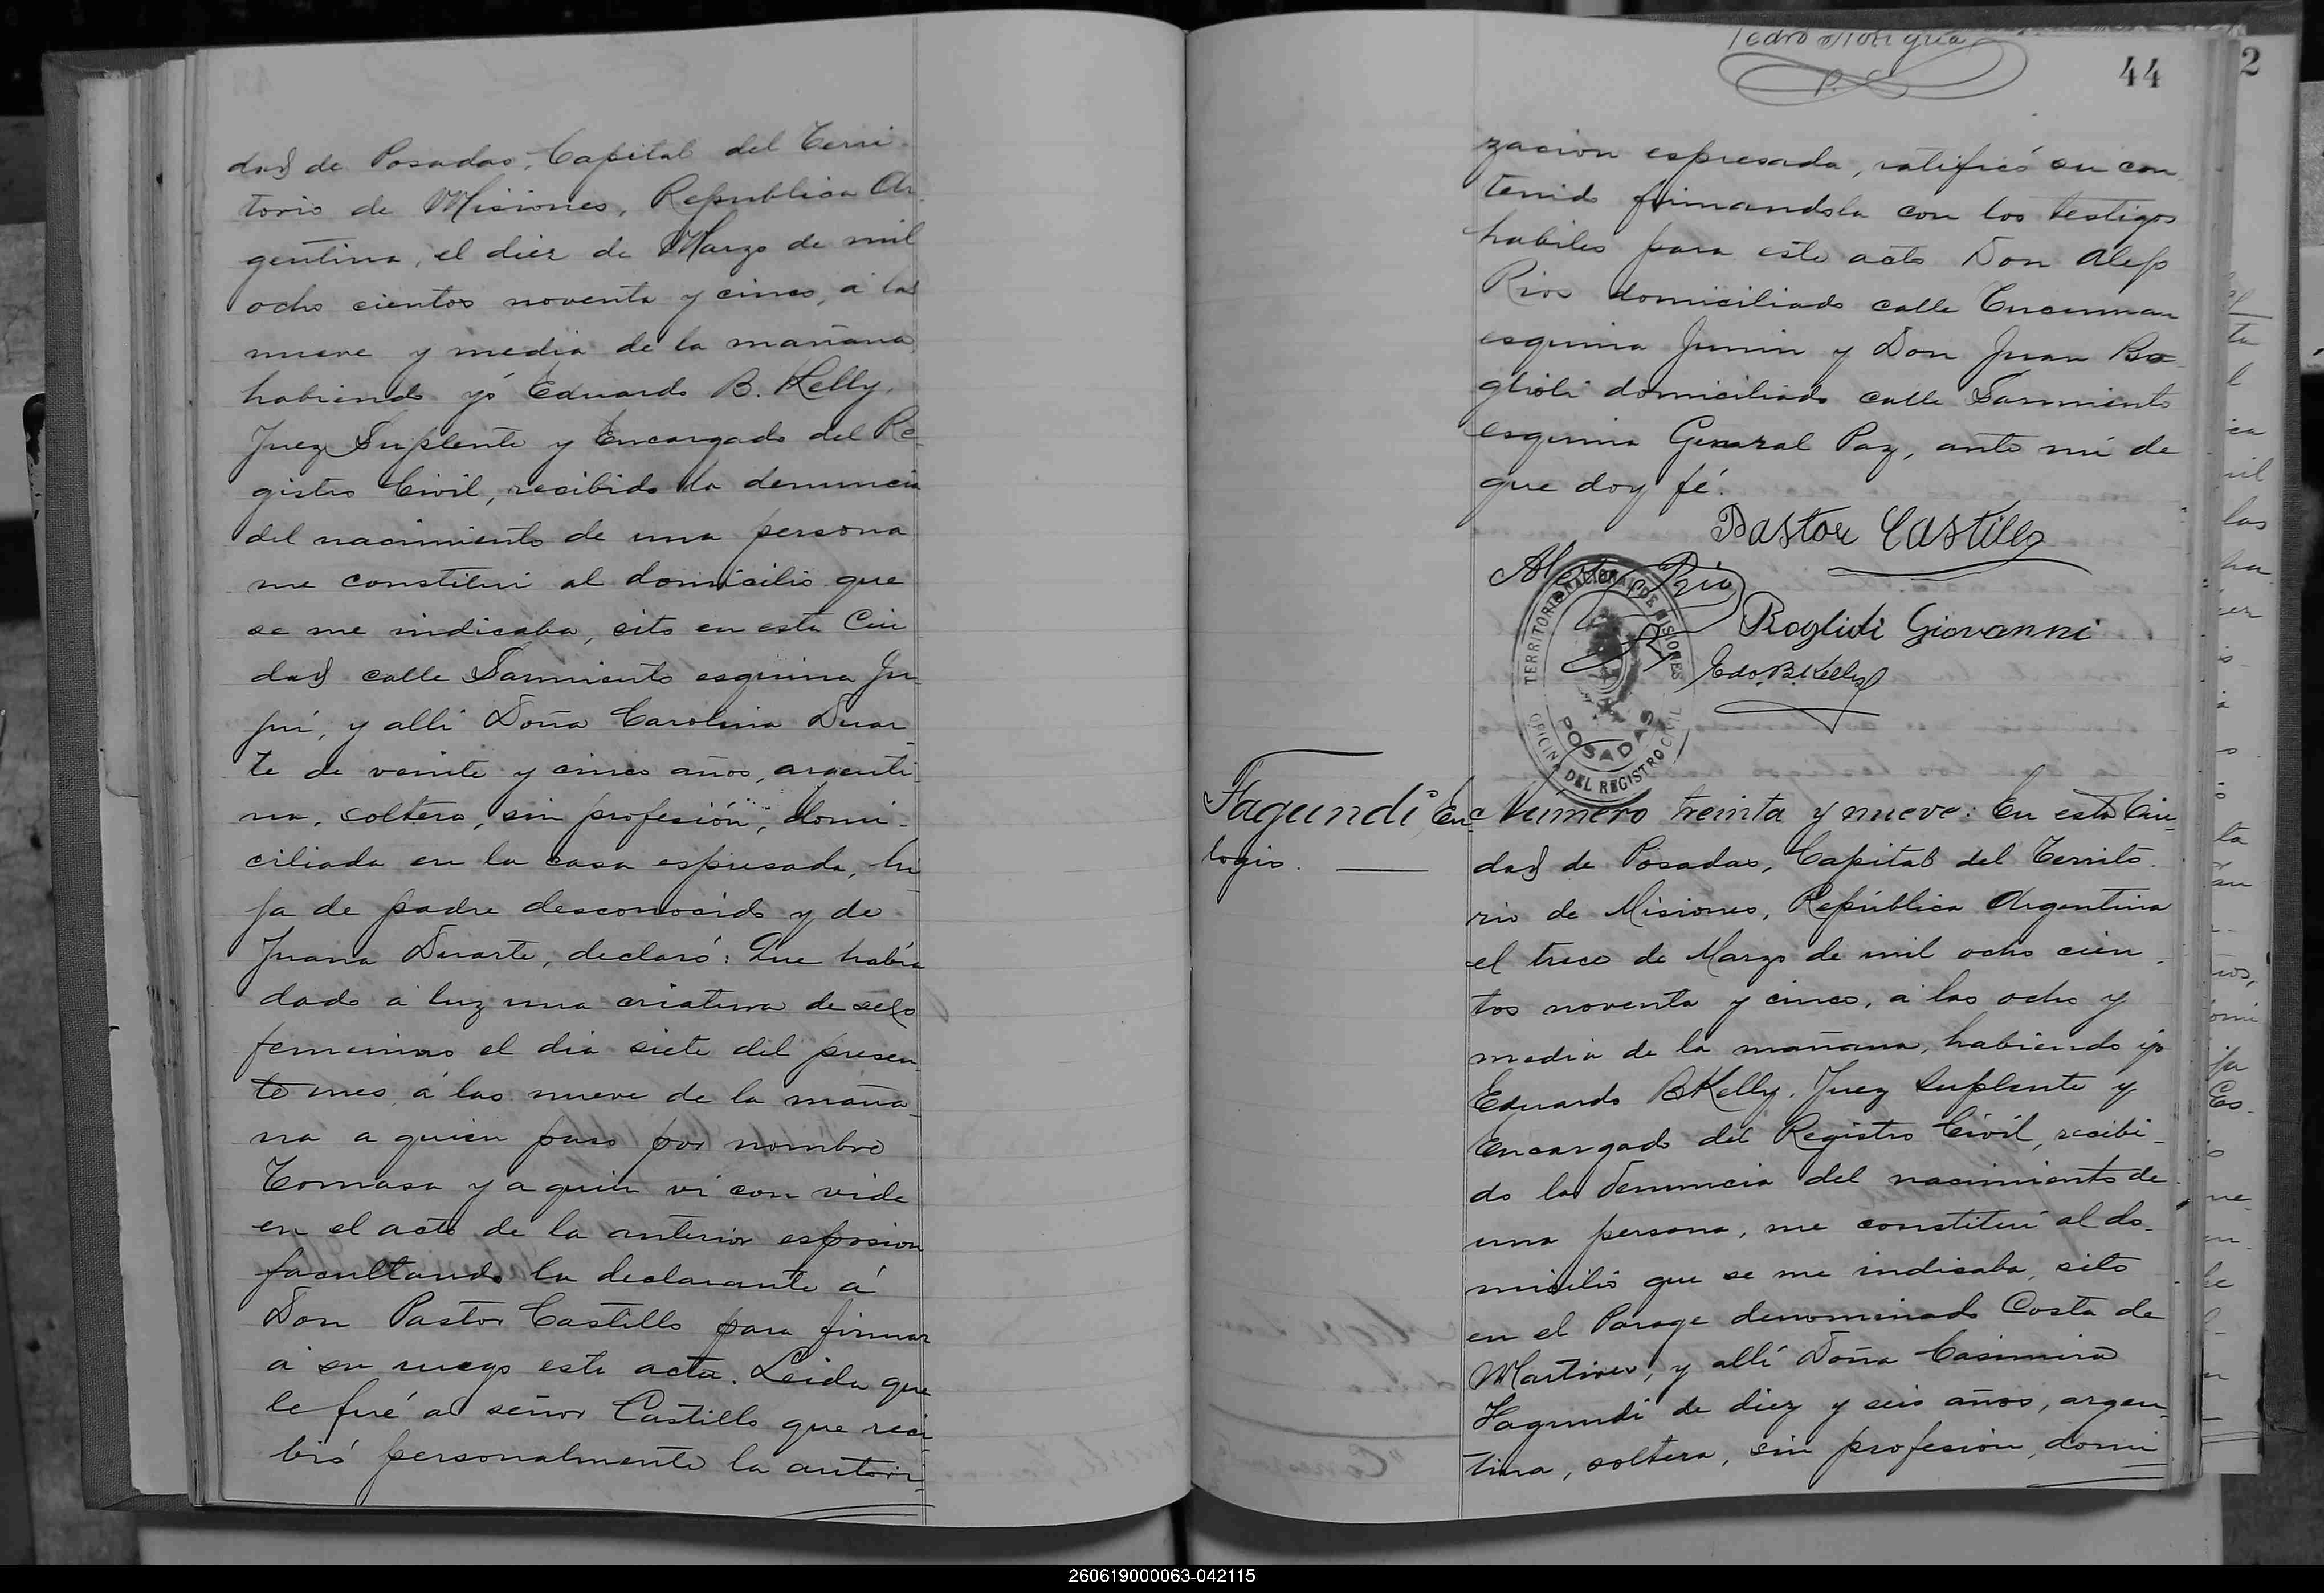 dad de Posadas, Capital del Terri-
torio de Misiones, Republica Ar-
gentina, el diez de Marzo de mil
ocho cientos noventa y cinco, á las
nueve y media de la mañana,
habiendo yó Eduardo B. Kelly,
Juez Suplente y Encargado del Re-
gistro Civil, recibido la denuncia
del nacimiento de una persona
me constituí al domicilio que
se me indicaba, sito en esta Ciu
dad calle Sarmiento esquina Ju-
juí, y alli Doña Carolina Duar-
te de veinte y cinco años, argenti-
na, soltera, sin profesión, domi-
ciliada en la casa espresada, hi-
ja de padre desconocido y de
Juana Duarte, declaró: Que había
dado á luz una criatura de sexo
femenino el dia siete del presen-
te mes á las nueve de la maña-
na a quien puso por nombre
Tomasa y a quien vi con vida
en el acto de la anterior esposicion
facultando la declarante á
Don Pastor Castillo para firmar
á su ruego este acta. Leida que
le fué al señor Castillo que reci-
bió personalmente la autori-
44
zacion espresada, ratificó su con-
tenido firmandola con los testigos
habiles para este acto Don Alejo
Rios domiciliado calle Tucuman
esquina Junin y Don Juan Bo-
glioli domiciliado calle Sarmiento
esquina General Paz, ante mi de
que doy fé.
Pastor Castillo
Alejo Rio
Giovanni
Edo. B. Kelly
TERRITORIO NACIONAL DE MISIONES
POSADAS
OFICINA DEL REGISTRO CIVIL
Fagundi Eu-
logio.
Número treinta y nueve: En esta Ciu-
dad de Posadas, Capital del Territo-
rio de Misiones, República Argentina
el trece de Marzo de mil ocho cien-
tos noventa y cinco, á las ocho y
media de la mañana, habiendo yo
Eduardo B Kelly, Juez Suplente y
Encargado del Registro Civil, recibi-
do la denuncia del nacimiento de
una persona, me constituí al do-
micilio que se me indicaba, sito
en el Parage denominado Costa de
Martires, y allí Doña Casimira
Fagundi de diez y seis años, argen-
tina, soltera, sin profesión, domi
260619000063-042115